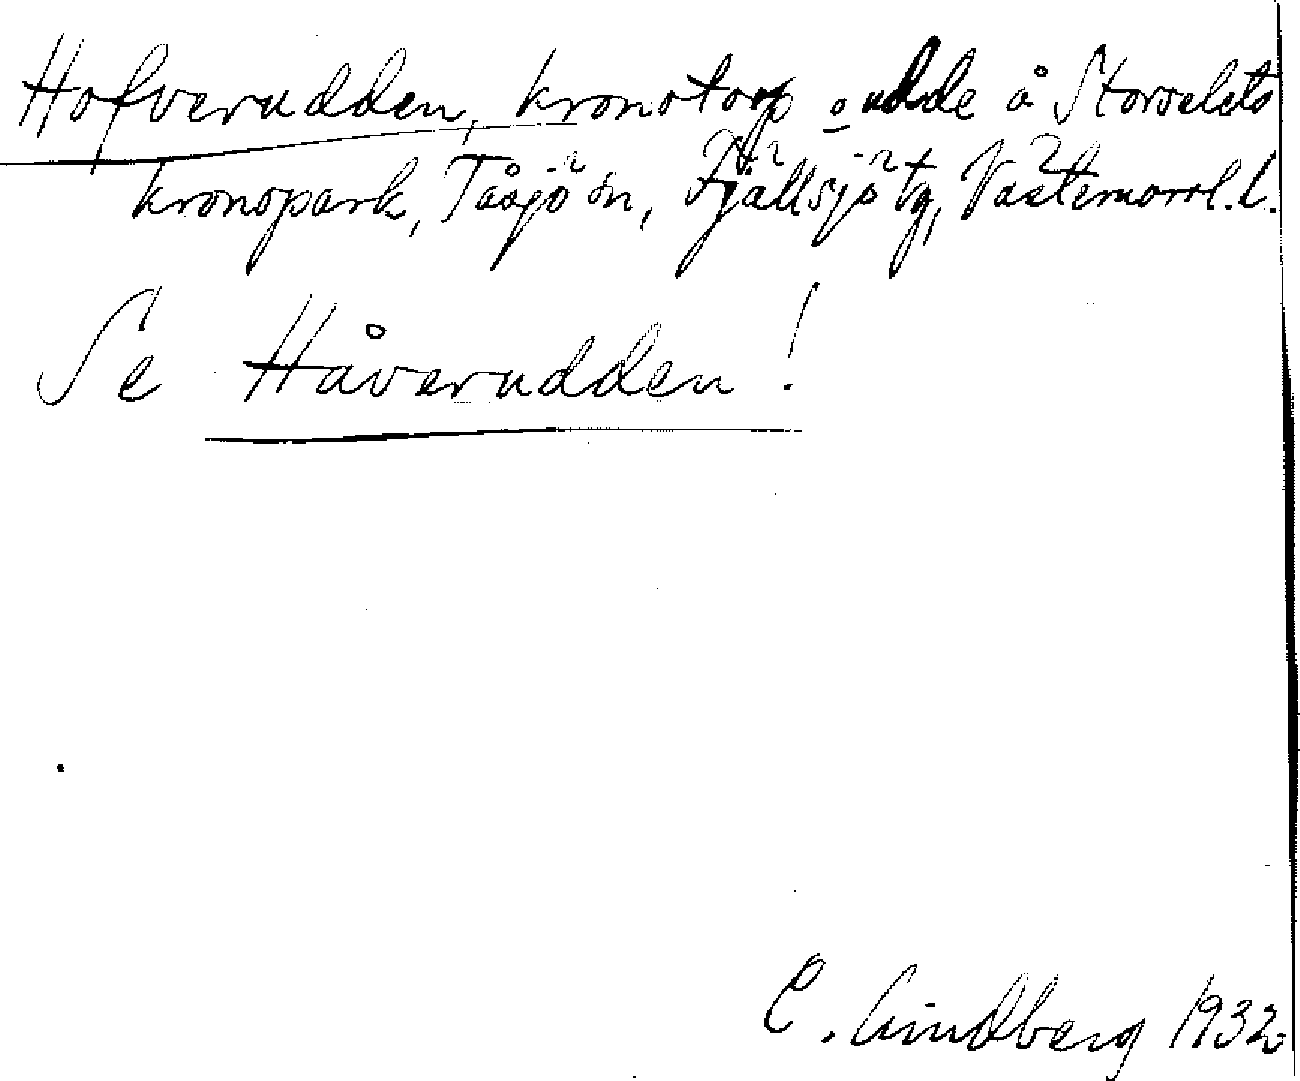 Hofverudden, kronotorp o udde å Storselets
kronopark, Tåsjö sn, Fjällsjö tg, Västernorrl. l.
Se Håverudden!
C. Lindberg 1932.